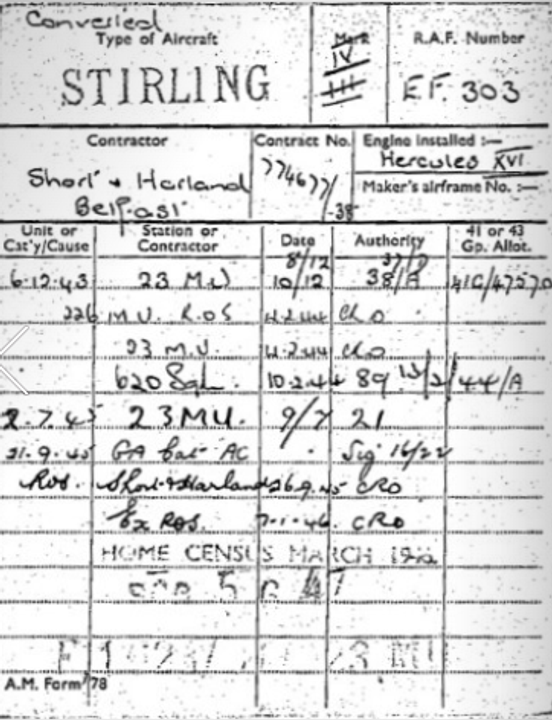 Converted
Type of Aircraft
STIRLING
Mark
IV
III
R.A.F. Number
EF. 303
Contractor
Short & Harland
Belfast
Contract No.
774677/
-38
Engine installed :—
Hercules XVI
Maker's airframe No. :—
Unit or Cat'y/Cause
Station or Contractor
Date
Authority
41 or 43 Gp. Allot.
8/12 37/D
6.12.43 23 M.U 10/12 38/A 41G/47570
226 M.U. R.O.S 4.2.44 CRO
23 M.U. 4.2.44 CRO
620 Sqn. 10.2.44 89 13/2 44/A
2.7.45 23 MU. 9/7 21
21.9.45 GA Cat AC Sig 16/22
Ros. Short & Harland 26.9.45 CRO
Ex ROS. 7-1-46. CRO
HOME CENSUS MARCH
23 MU
A.M. Form 78